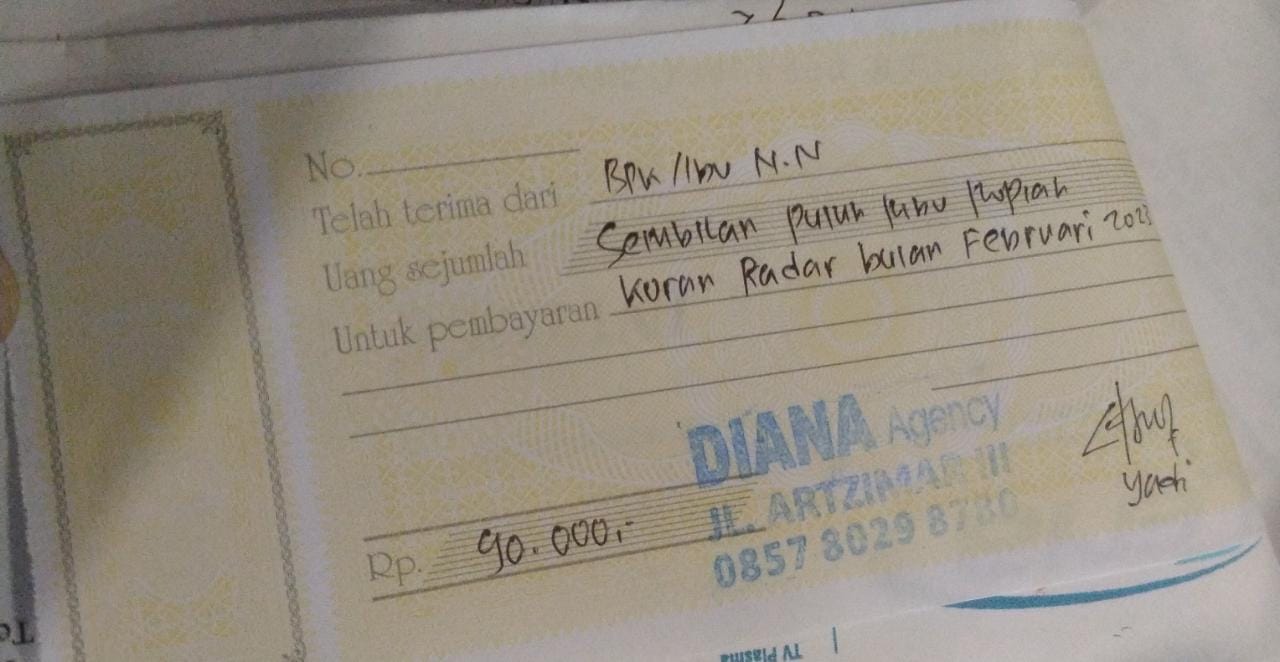 No.
Telah terima dari BPK/Ibu N.N
Uang sejumlah Sembilan puluh ribu rupiah
Untuk pembayaran Koran Radar bulan Februari 2023
DIANA Agency
JL. ARTZIMAR III
0857 8029 8780
Rp. 90.000,-
Yadi
TV Plasma